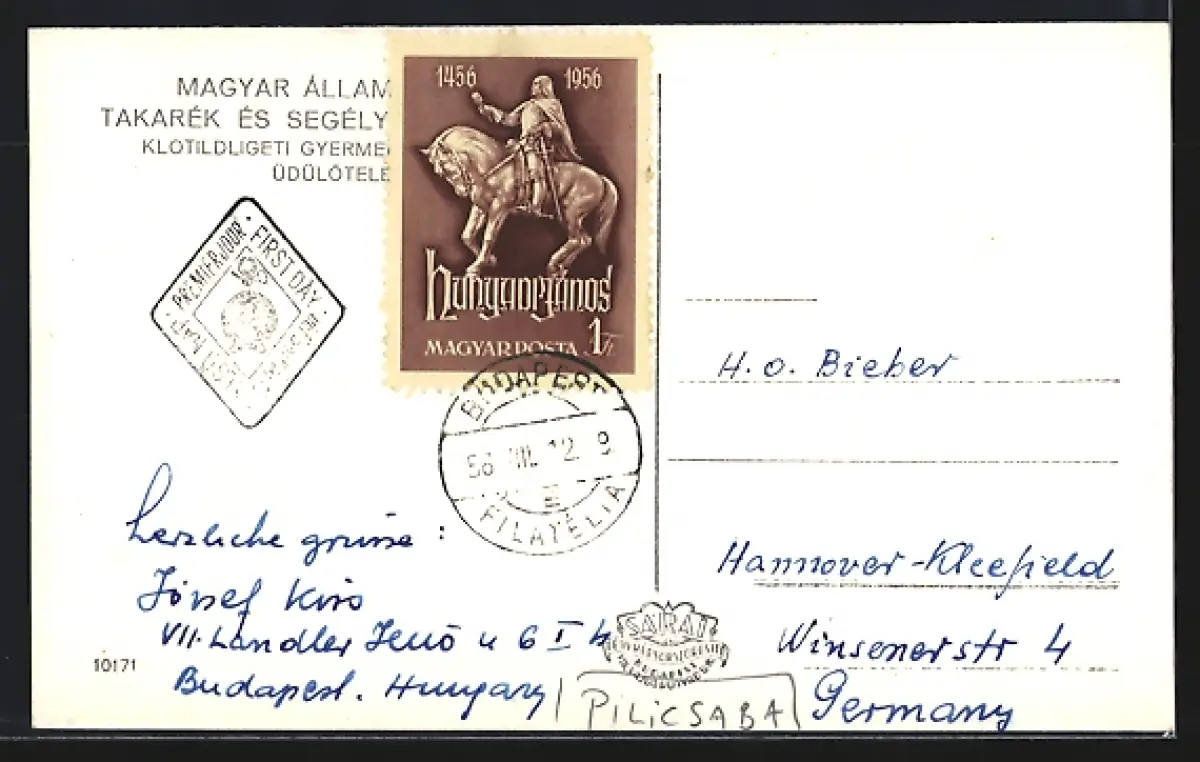 MAGYAR ÁLLAM
TAKARÉK ÉS SEGÉLY
KLOTILDLIGETI GYERME
ÜDÜLŐTELE
1456 1956
Hunyadi János
MAGYAR POSTA 1 Ft
PREMIER JOUR · FIRST DAY
BUDAPEST
56 VIII. 12. 9
FILATÉLIA
H. o. Bieber
Hannover-Kleefield
Winsenerstr 4
Germany
Herzliche grüsse :
József Kiró
VII. Landler Jenő u 6 I 4
Budapest. Hungary
10171
PILICSABA